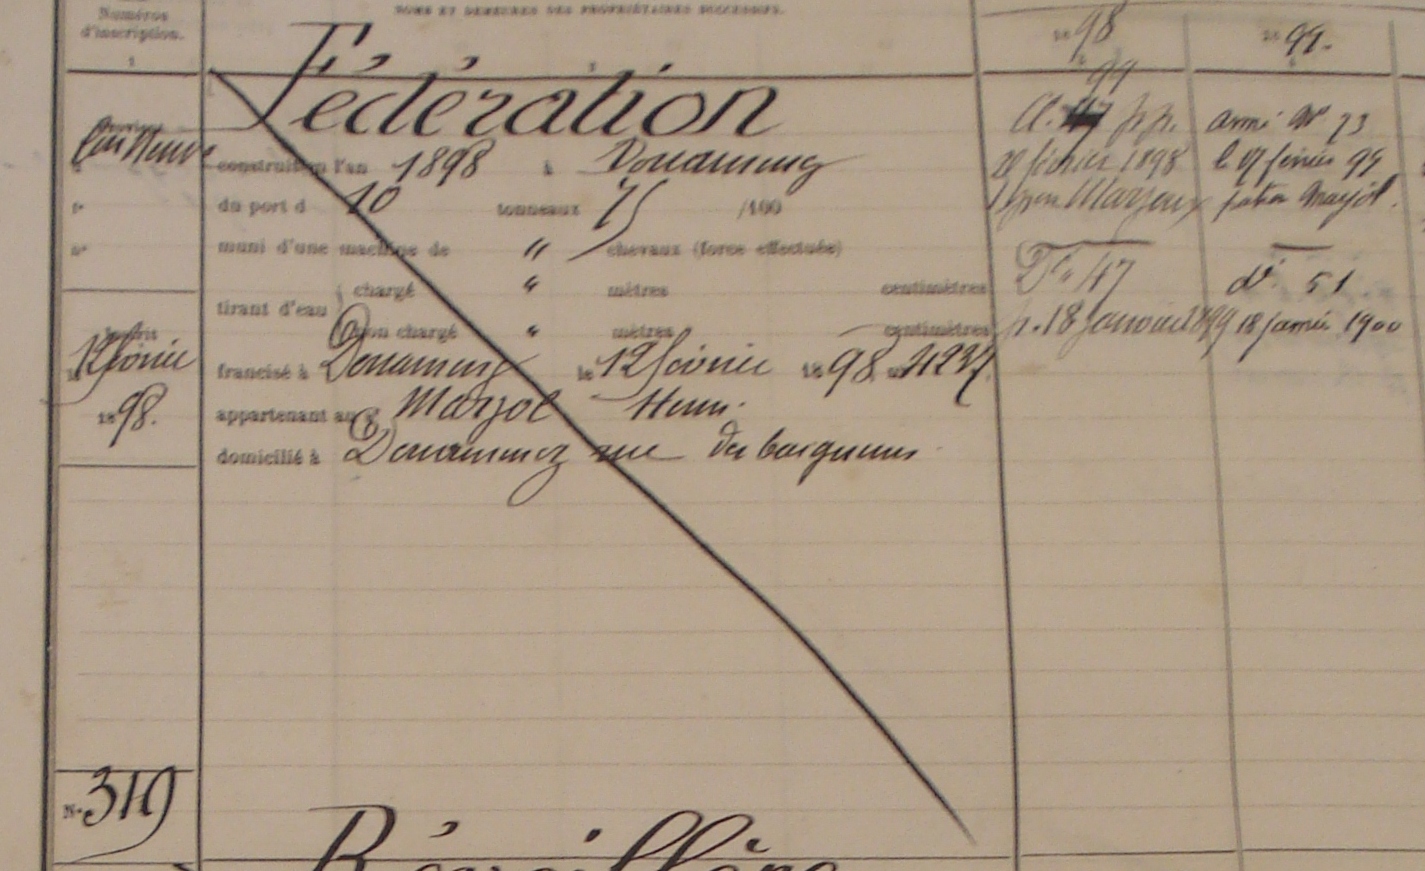 Numéros
d'inscription.
1
NOMS ET DEMEURES DES PROPRIÉTAIRES SUCCESSIFS.
1898
99
1899.
Fédération
construit en l'an 1898 à Douarnenez
du port d 10 tonneaux 75 /100
muni d'une machine de " chevaux (force effectuée)
tirant d'eau
chargé " mètres centimètres
non chargé " mètres centimètres
francisé à Douarnenez le 12 février 1898
appartenant au Sr Marjol Henri
domicilié à Douarnenez rue
Inscrit
le 12 février
1898.
p.p.
20 février 1898
Do 47
p. 18 janvier 1899
armé No 73
le 17 février 99
patron Marjol.
do 51
18 janvier 1900
No 319
Réveillère